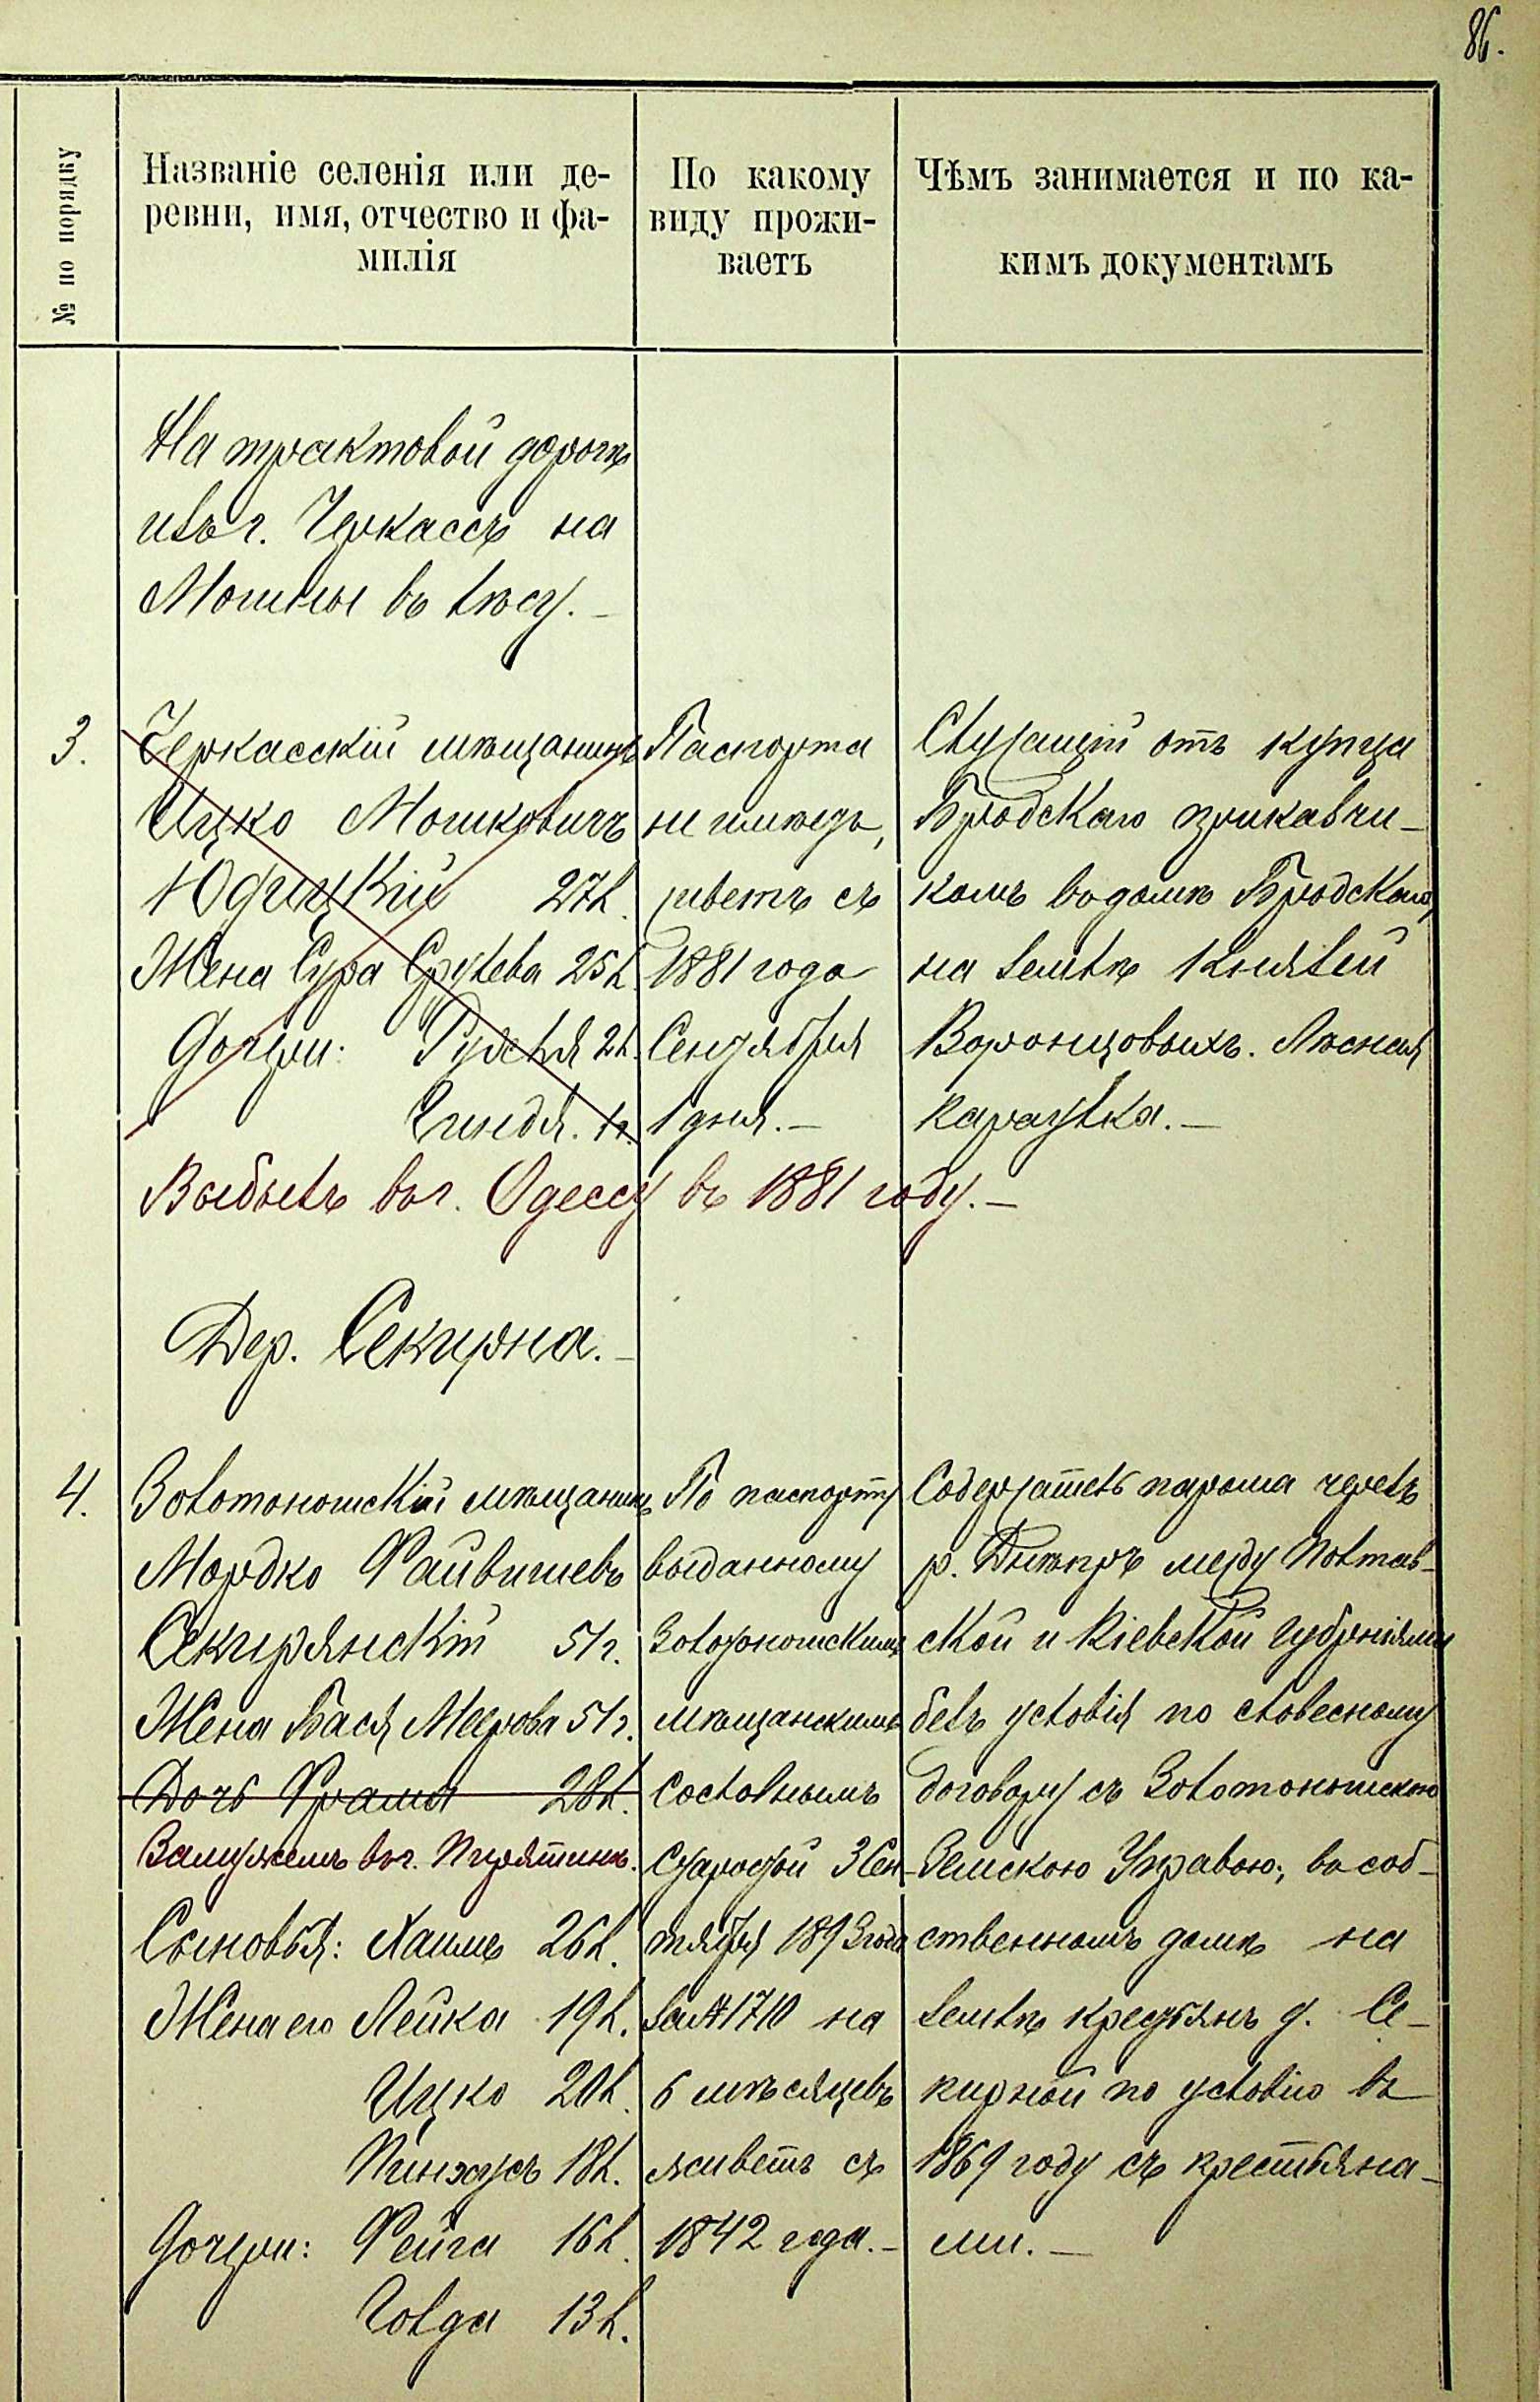 86.
№ по порядку
Названіе селенія или де-
ревни, имя, отчество и фа-
милія
По какому
виду прожи-
ваетъ
Чѣмъ занимается и по ка-
кимъ документамъ
На трактовой дорогѣ
изъ г. Черкассъ на
Мошны въ лѣсу. –
3.
Черкасскій мѣщанинъ
Ицко Мошковичъ
27 л.
Жена Сура Срулева 25 л.
Дочери: 2 л.
Гиндя. 1 г.
Паспорта
не имѣетъ,
живетъ съ
1881 года
Сентября
1 дня. –
Служащій отъ купца
Бродскаго приказчи-
комъ въ домѣ Бродскаго,
на землѣ Князей
Воронцовыхъ. Лѣсная
караулка. –
Выбылъ въ г. Одессу въ 1881 году. –
Дер. Секирна. –
4.
Золотоношскій мѣщанинъ
Мордко Файвишевъ
Секирянскій 51 г.
Жена Бася Меерова 51 г.
Дочь Фрама 28 л.
Замужемъ въ г. Пирятинѣ.
Сыновья: Хаимъ 26 л.
Жена его Лейка 19 л.
Ицко 20 л.
Пинхусъ 18 л.
Дочери: Фейга 16 л.
Голда 13 л.
По паспорту
выданному
Золотоношскимъ
мѣщанскимъ
сословнымъ
старостой 3 Сен-
тября 1893 года
за № 1710 на
6 мѣсяцевъ
живетъ съ
1842 года. –
Содержатель парома черезъ
р. Днѣпръ между Полтав-
ской и Кіевской губерніями
безъ условія по словесному
договору съ Золотоношскою
Земскою Управою; въ соб-
ственномъ домѣ на
землѣ крестьянъ д. Се-
кирной по условію въ
1869 году съ крестьяна-
ми. –